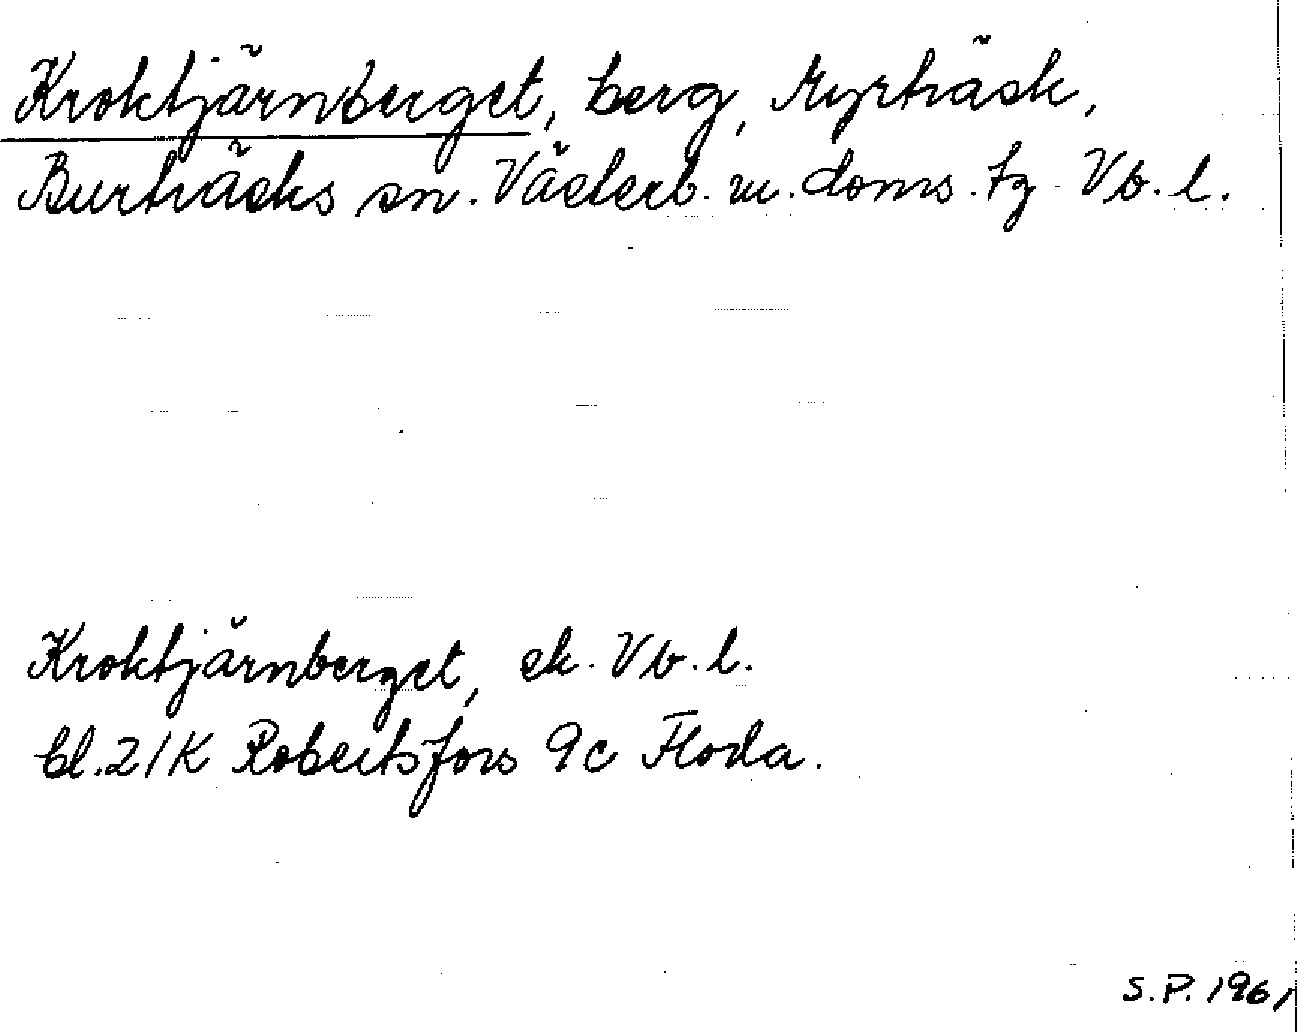 Kroktjärnberget, berg, Myrträsk,
Burträsks sn. Västerb. m. doms. tg Vb. l.
Kroktjärnberget, ek. Vb. l.
bl. 21K Robertsfors 9c Floda.
S.P. 1961